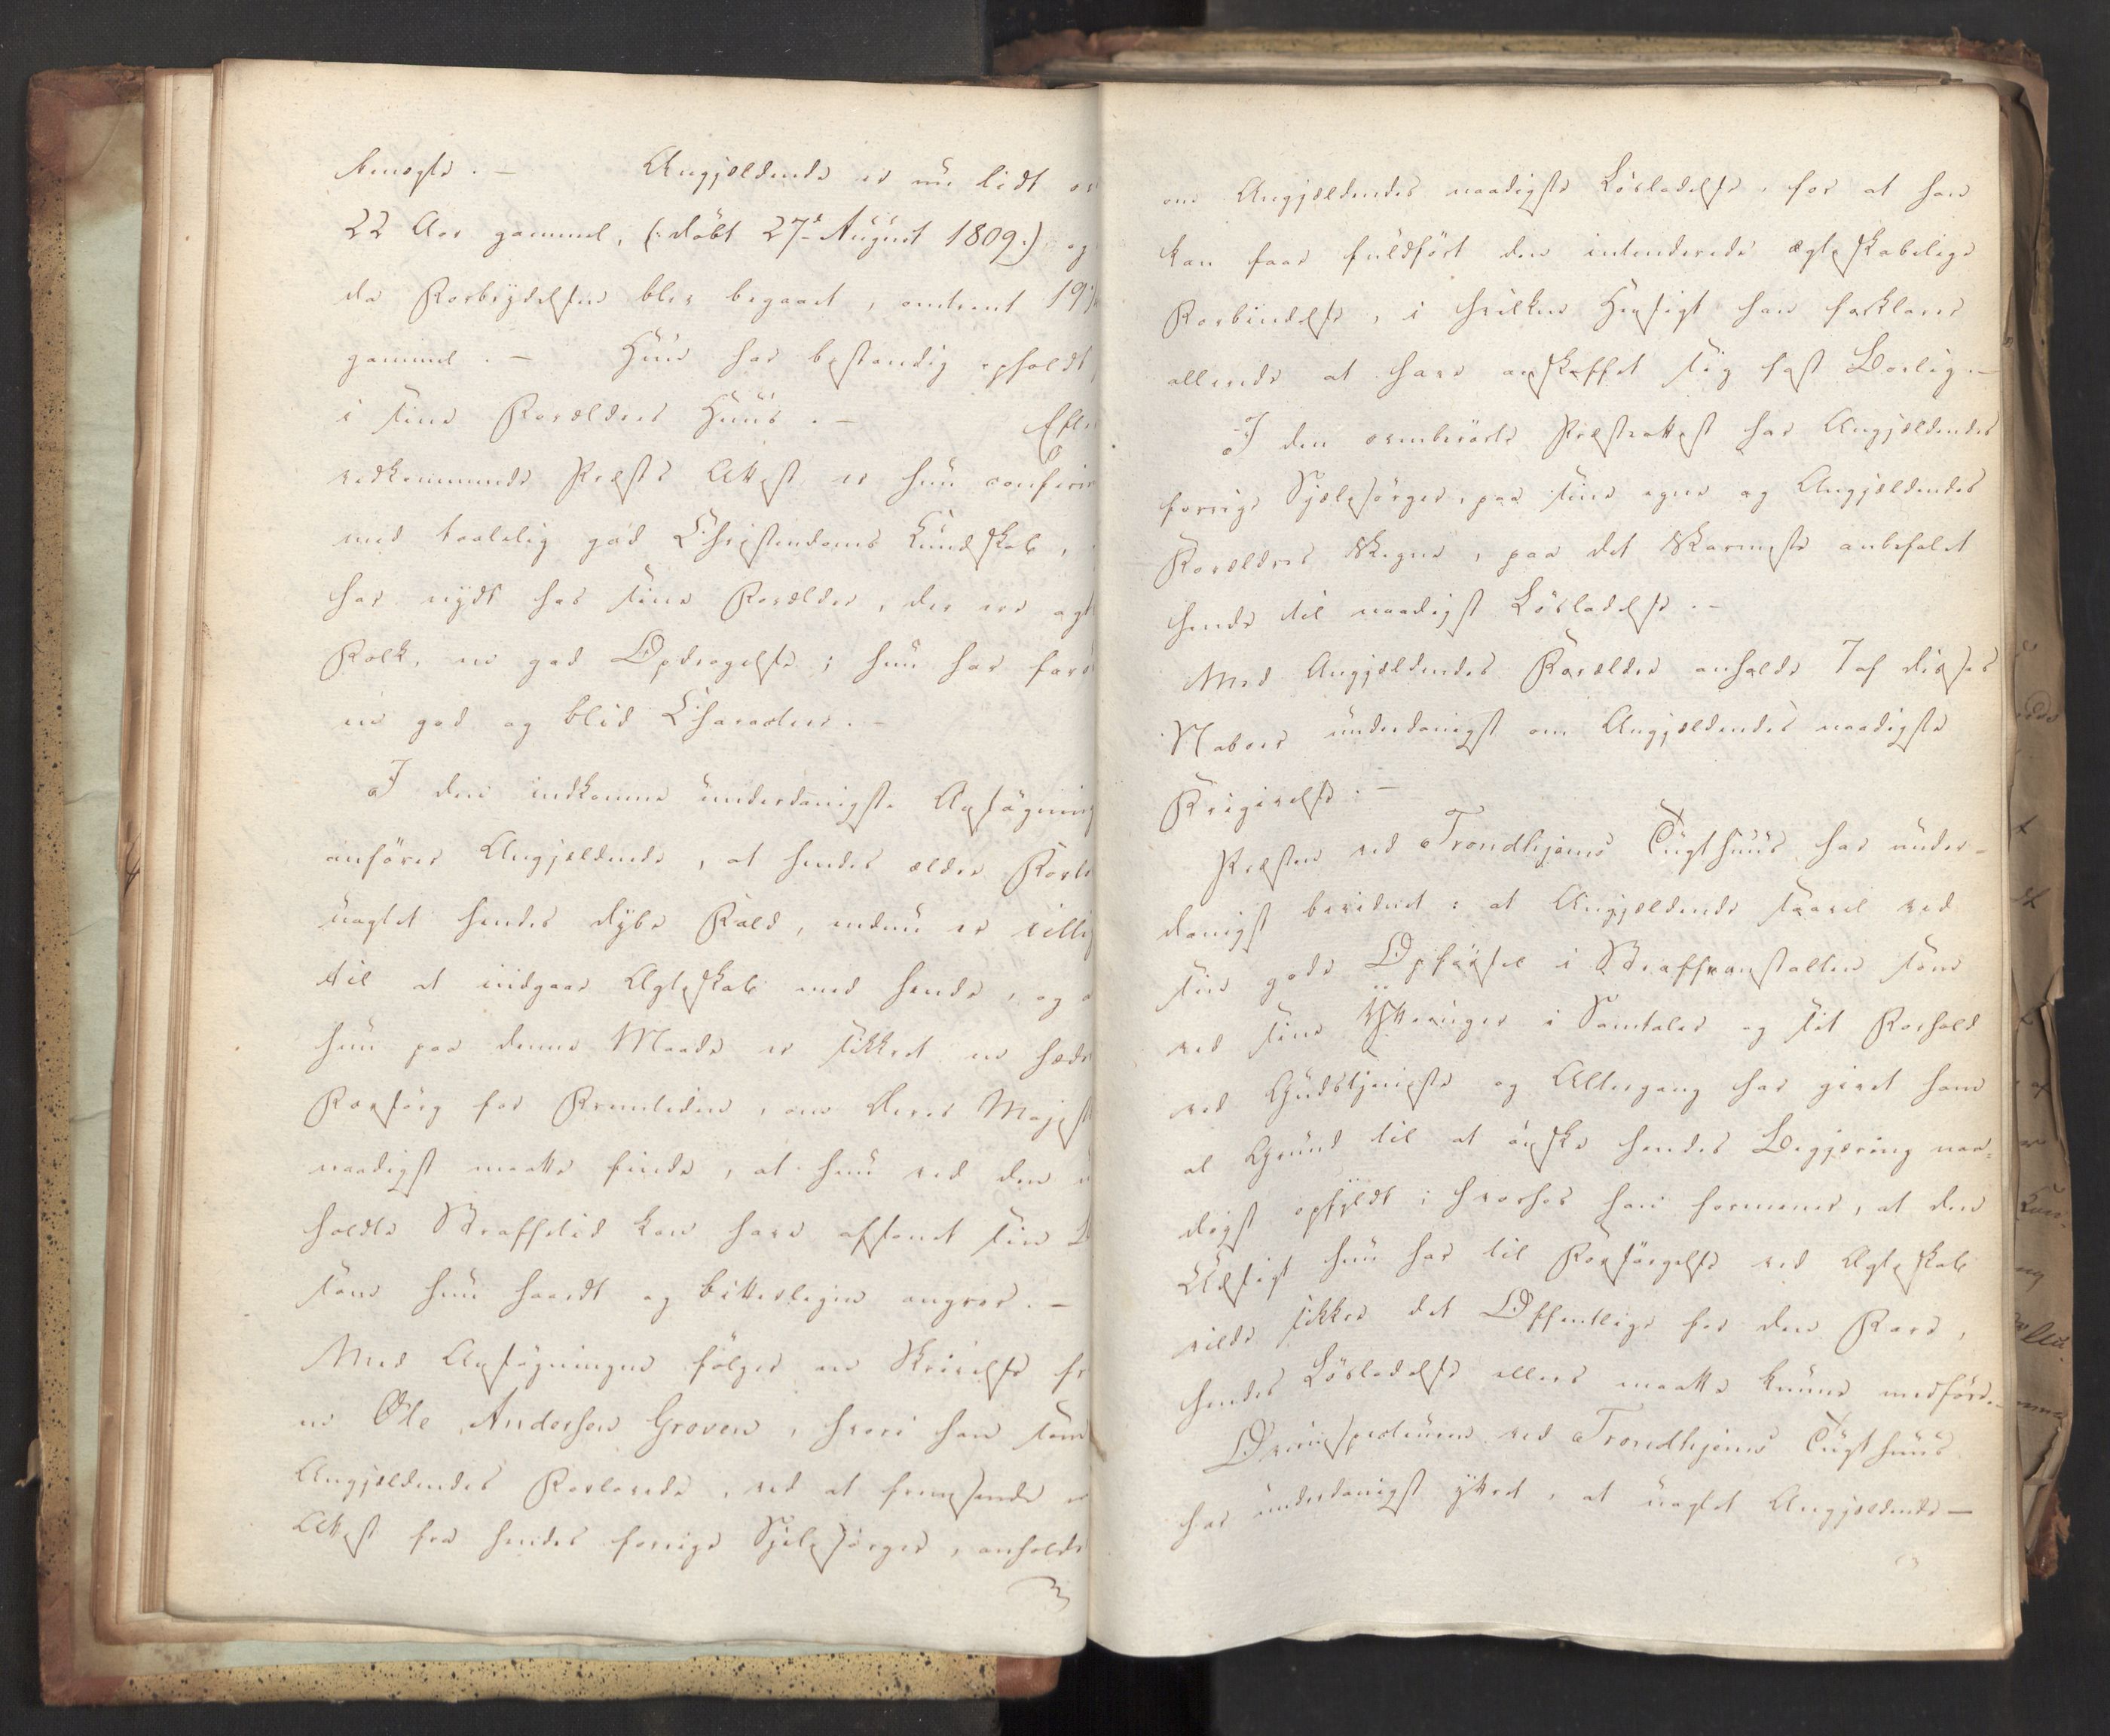 benægte. — Angjeldende er nu lidt ov
22 Aar gammel, (: döbt 27de August 1809.) og
da Forbrydelsen blev begaaet, omtrent 19
gammel. — Hun har bestandig opholdt
i sine Forældres Huus. — Efter
vedkommende Præsts Attest er hun confirm
med taalelig god Christendoms Kundskab,
har nydt hos sine Forældre, der ere agt
Folk, en god Opdragelse; hun har for
en god og blid Characteer. —
I den indkomne underdanigste Ansögning
anförer Angjeldende, at hendes ældre Forlo
uagtet hendes dybe Fald, endnu er villig
til at indgaae Ægteskab med hende, og a
hun paa denne Maade er sikkret en hæder
Forsörg for Fremtiden, om Deres Majest
naadigst maatte finde, at hun ved den u
holdte Straffetid kan have afsonet sin
som hun haardt og bitterligen angrer. —
Med Ansögningen fölger en Skrivelse fr
en Ole Andersen Groven, hvori han som
Angjeldendes Forlovede, ved at fremsende e
Attest fra hendes forrige Sjelesörger, anholde
om Angjeldendes naadigste Lösladelse, for at han
kan faae fuldfört den intenderede ægteskabelige
Forbindelse, i hvilken Hensigt han forklarer
allerede at have anskaffet sig fast Bolig. —
I den ommeldte Præsteattest har Angjeldendes
forrige Sjelesörger, paa sine egne og Angjeldendes
Forældres Vegne, paa det Varmeste anbefalet
hende til naadigst Lösladelse. —
Med Angjeldendes Forældre anholde 7 af disses
Naboer underdanigst om Angjeldendes naadigste
Frigivelse. —
Præsten ved Trondhjems Tugthuus har under-
danigst bevidnet: at Angjeldende saavel ved
sin gode Opförsel i Straffeanstalten som
ved sine Yttringer i Samtaler og sit Forhold
ved Gudstjeneste og Altergang har givet ham
al Grund til at önske hendes Begjæring naa-
digst opfyldt; hvorhos han formener, at den
Udsigt hun har til Forsörgelse ved Ægteskab
vilde sikkre det Offentlige for den Fare,
hendes Lösladelse ellers maatte kunne medföre. —
Overinspecteuren ved Trondhjems Tugthuus
har underdanigst yttret, at uagtet Angjeldende —